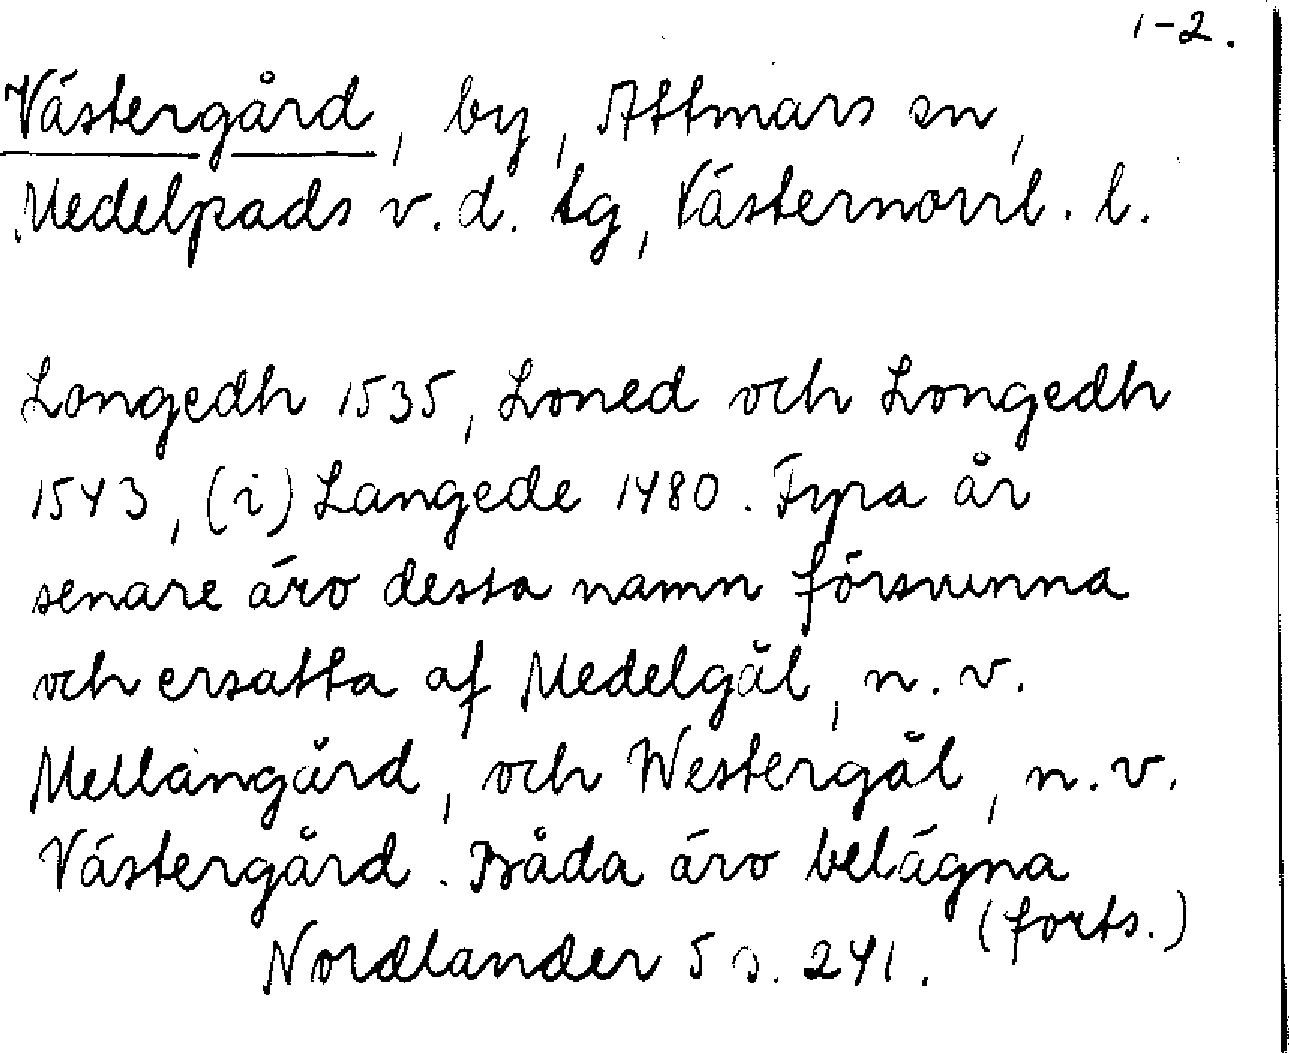 1-2.
Västergård, by, Attmars sn,
Medelpads v.d. tg, Västernorrl. l.
Longedh 1535, Loned och Longedh
1543, (i) Langede 1480. Fyra år
senare äro dessa namn försvunna
och ersatta af Medelgål, n.v.
Mellangård, och Westergål, n.v.
Västergård. Båda äro belägna
(forts.)
Nordlander 5 s. 241.